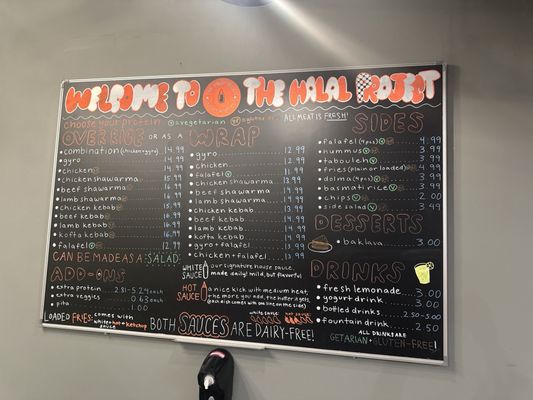 WELCOME TO THE HALAL PROJECT
choose your protein vegetarian gluten ALL MEAT IS FRESH!
OVER RICE OR AS A
combination (chicken+gyro) 14.99
gyro 14.99
chicken 14.99
chicken shawarma 15.99
beef shawarma 16.99
lamb shawarma 16.99
chicken kebab 15.99
beef kebab 16.99
lamb kebab 16.99
kofta kebab 16.99
falafel 12.99
CAN BE MADE AS A SALAD
ADD-ONS
extra protein 2.81-5.24 each
extra veggies 0.63 each
pita 1.00
LOADED FRIES: comes with
white+hot+ketchup
WRAP
gyro 12.99
chicken 12.99
falafel 11.99
chicken shawarma 13.99
beef shawarma 14.99
lamb shawarma 14.99
chicken kebab 13.99
beef kebab 14.99
lamb kebab 14.99
kofta kebab 14.99
gyro+falafel 13.99
chicken+falafel 13.99
WHITE SAUCE our signature house sauce,
made daily! mild, but flavorful
HOT SAUCE a nice kick with medium heat;
the more you add, the hotter it gets,
(each dish comes with one line on the side)
BOTH SAUCES ARE DAIRY-FREE!
white sauce: hot sauce:
SIDES
falafel (4pcs) 4.99
hummus 3.99
tabouleh 3.99
fries (plain or loaded) 4.99
dolma (4pcs) 3.99
basmati rice 3.99
chips 2.00
side salad 3.49
DESSERTS
baklava 3.00
DRINKS
fresh lemonade 3.00
yogurt drink 3.00
bottled drinks 2.50-3.00
fountain drink 2.50
ALL DRINKS ARE
GETARIAN+GLUTEN-FREE!